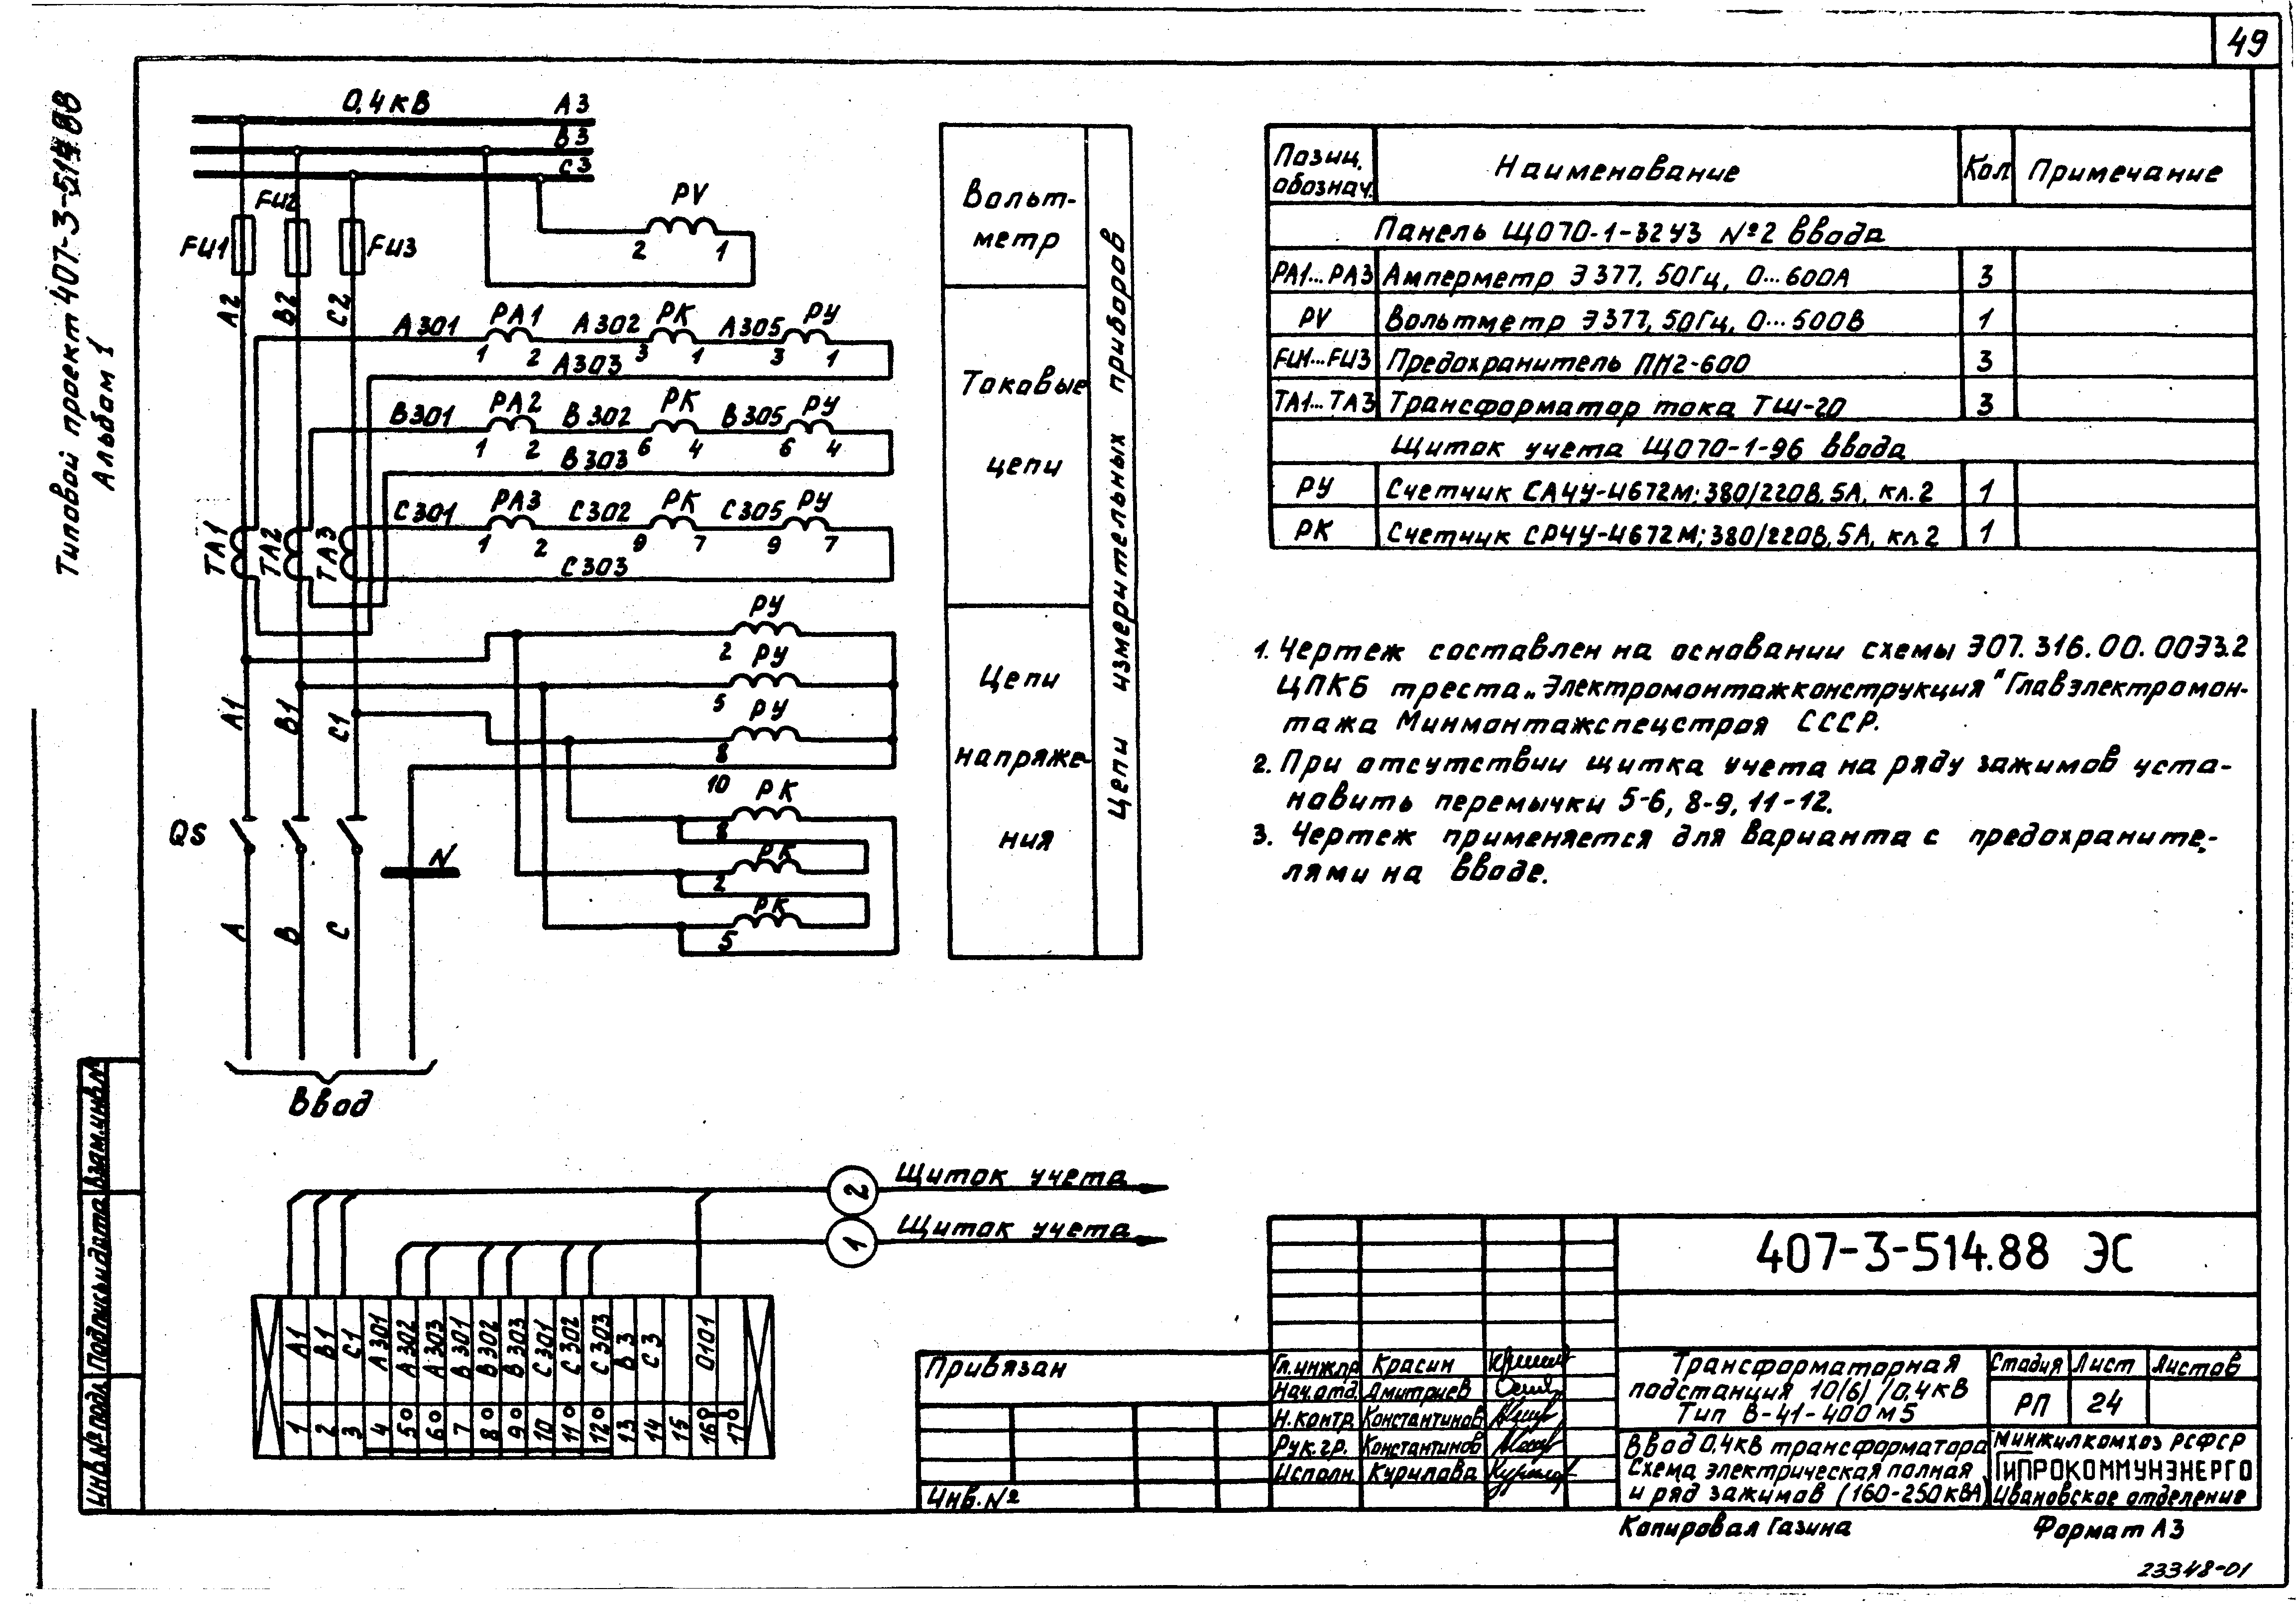 49
Типовой проект 407-3-514.88
Альбом 1
0,4кВ
А3
В3
С3
FU1
FU2
FU3
PV
2 1
А2
В2
С2
А301 РА1 А302 РК А305 РУ
1 2 3 1 3 1
А303
В301 РА2 В302 РК В305 РУ
1 2 6 4 6 4
В303
С301 РА3 С302 РК С305 РУ
1 2 9 7 9 7
С303
ТА1
ТА2
ТА3
РУ
2
РУ
5
РУ
8
10
РК
8
РК
2
РК
5
А1
В1
С1
QS
N
А
В
С
Ввод
Вольт-
метр
Токовые
цепи
Цепи
напряже-
ния
Цепи измерительных приборов
Позиц. обознач. Наименование Кол Примечание
Панель ЩО70-1-32У3 №2 ввода
РА1...РА3 Амперметр Э377, 50Гц, 0...600А 3
PV Вольтметр Э377, 50Гц, 0...500В 1
FU1...FU3 Предохранитель ПН2-600 3
ТА1...ТА3 Трансформатор тока ТШ-20 3
Щиток учета ЩО70-1-96 ввода
РУ Счетчик СА4У-И672М; 380/220В, 5А, кл.2 1
РК Счетчик СР4У-И672М; 380/220В, 5А, кл.2 1
1. Чертеж составлен на основании схемы Э07.316.00.00Э3.2
ЦПКБ треста „Электромонтажконструкция" Главэлектромон-
тажа Минмонтажспецстроя СССР.
2. При отсутствии щитка учета на ряду зажимов уста-
новить перемычки 5-6, 8-9, 11-12.
3. Чертеж применяется для варианта с предохраните-
лями на вводе.
2 Щиток учета
1 Щиток учета
А1 В1 С1 А301 А302 А303 В301 В302 В303 С301 С302 С303 В3 С3 0101
1 2 3 4 5 6 7 8 9 10 11 12 13 14 15 16 17
Взам.инв.№
Подпись и дата
Инв.№ подл
Привязан
Инв.№
407-3-514.88 ЭС
Гл.инж.пр. Красин
Нач.отд. Дмитриев
Н.контр. Константинов
Рук.гр. Константинов
Исполн. Курилова
Трансформаторная
подстанция 10(6)/0,4кВ
Тип В-41-400м5
Стадия Лист Листов
РП 24
Ввод 0,4кВ трансформатора
Схема электрическая полная
и ряд зажимов (160-250кВА)
Минжилкомхоз РСФСР
ГИПРОКОММУНЭНЕРГО
Ивановское отделение
Копировал Газина
Формат А3
23348-01